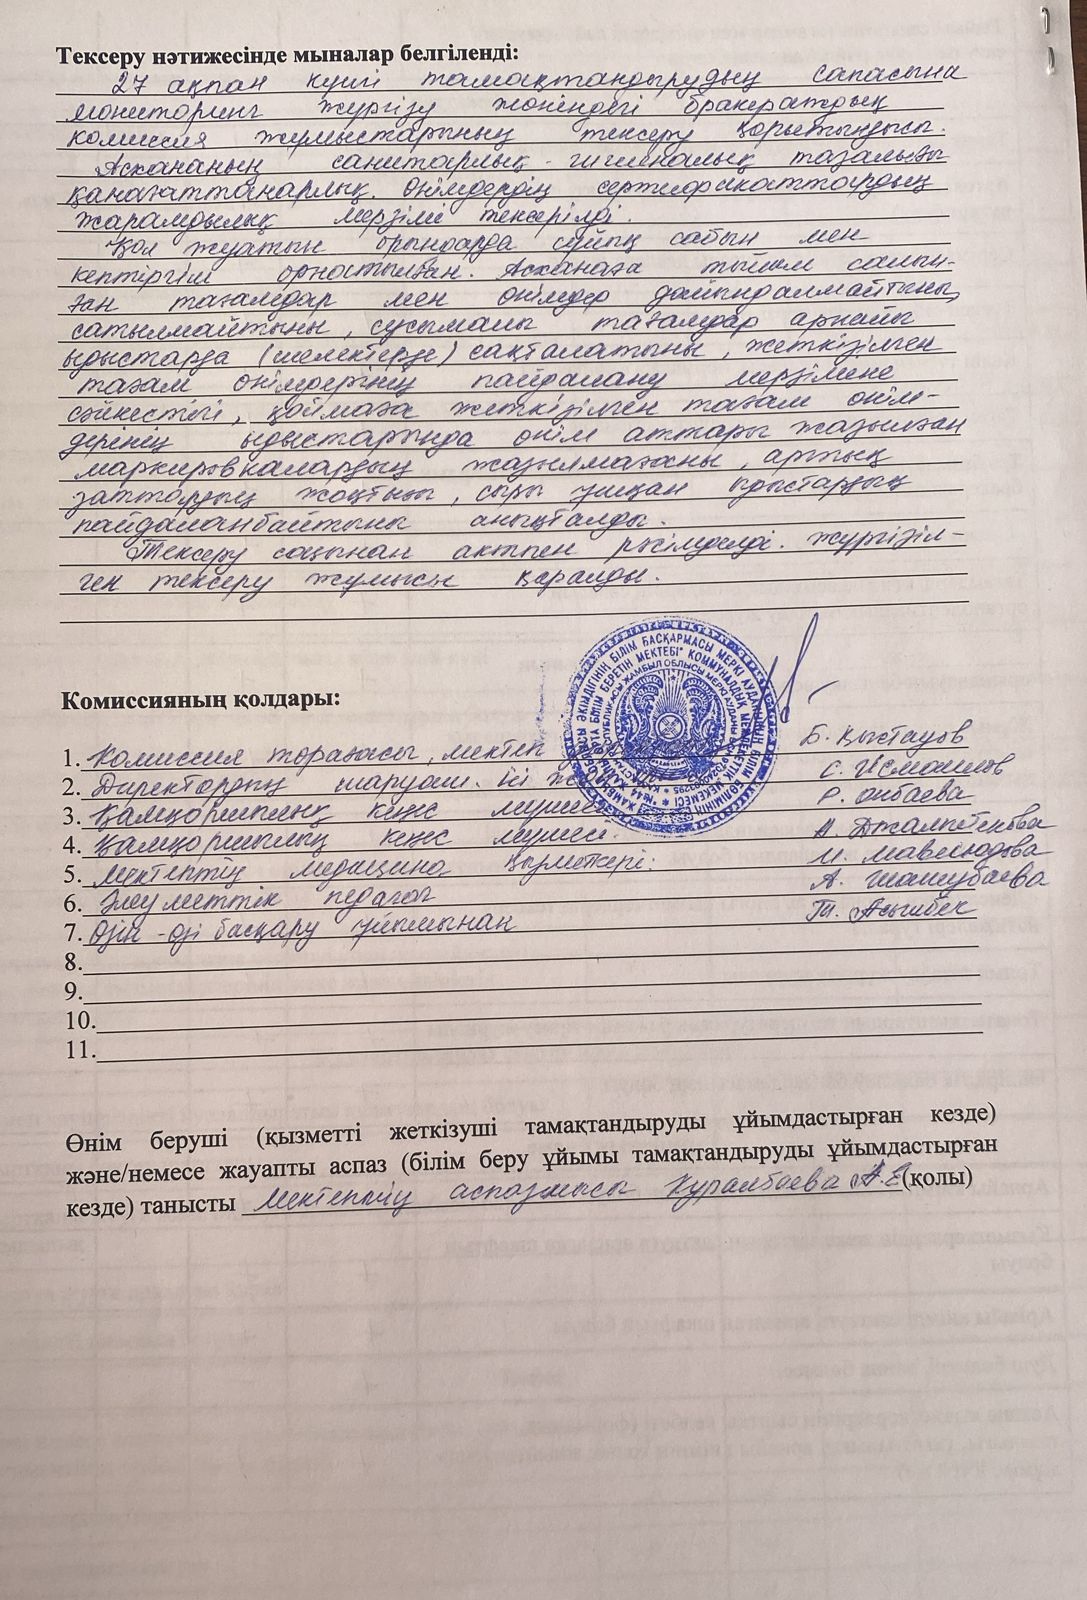 Тексеру нәтижесінде мыналар белгіленді:
27 ақпан күнгі тамақтандырудың сапасына
мониторинг жүргізу жөніндегі бракераждық
комиссия жұмыстарының тексеру қорытындысы.
Асхананың санитарлық-гигиеналық тазалығы
қанағаттанарлық. Өнімдердің сертификаттардың
жарамдылық мерзімі тексерілді.
Қол жуатын орындарда сұйық сабын мен
кептіргіш орнатылған. Асханаға тыйым салын-
ған тағамдар мен өнімдер дайындалмайтыны,
сатылмайтыны, сусымалы тағамдар арнайы
ыдыстарда (шелектерде) сақталатыны, жеткізілген
тағам өнімдерінің пайдалану мерзіміне
сәйкестігі, қоймаға жеткізілген тағам өнім-
дерінің ыдыстарында өнім аттары жазылған
маркировкалардың жазылмағаны, артық
заттардың жоқтығы, сыры ұшқан ыдыстардың
пайдаланбайтыны анықталды.
Тексеру соңынан актпен рәсімделді. Жүргізіл-
ген тексеру жұмысы қаралды.
Комиссияның қолдары:
1. Комиссия торағасы, мектеп Б. Қыстауов
2. Директордың шаруаш. ісі ж С. Исмаилов
3. Қамқоршылық кеңес мүшесі Р. Онбаева
4. Қамқоршылық кеңес мүшесі. А.
5. Мектептің медицина қызметкері. И.
6. Әлеуметтік педагог А.
7. Өзін-өзі басқару ұйымынан Т. Асылбек
8.
9.
10.
11.
Өнім беруші (қызметті жеткізуші тамақтандыруды ұйымдастырған кезде)
және/немесе жауапты аспаз (білім беру ұйымы тамақтандыруды ұйымдастырған
кезде) танысты Мектептің аспазшысы Құралбаева А.Е (қолы)